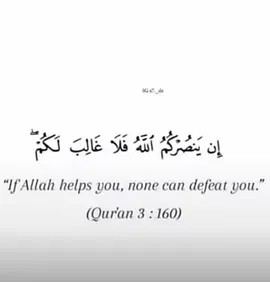 إِن يَنصُرْكُمُ ٱللَّهُ فَلَا غَالِبَ لَكُمْ ۖ
“If Allah helps you, none can defeat you.”
(Qur'an 3 : 160)